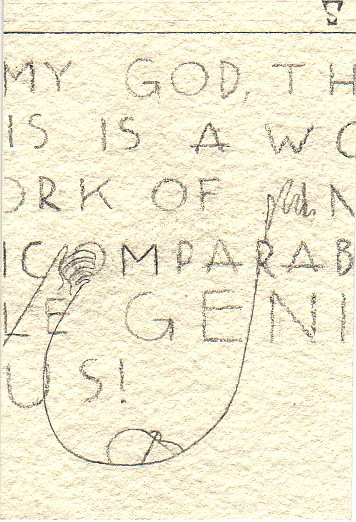 MY GOD, TH
IS IS A WO
ORK OF N
ICOMPARAB
LE GENI
US!